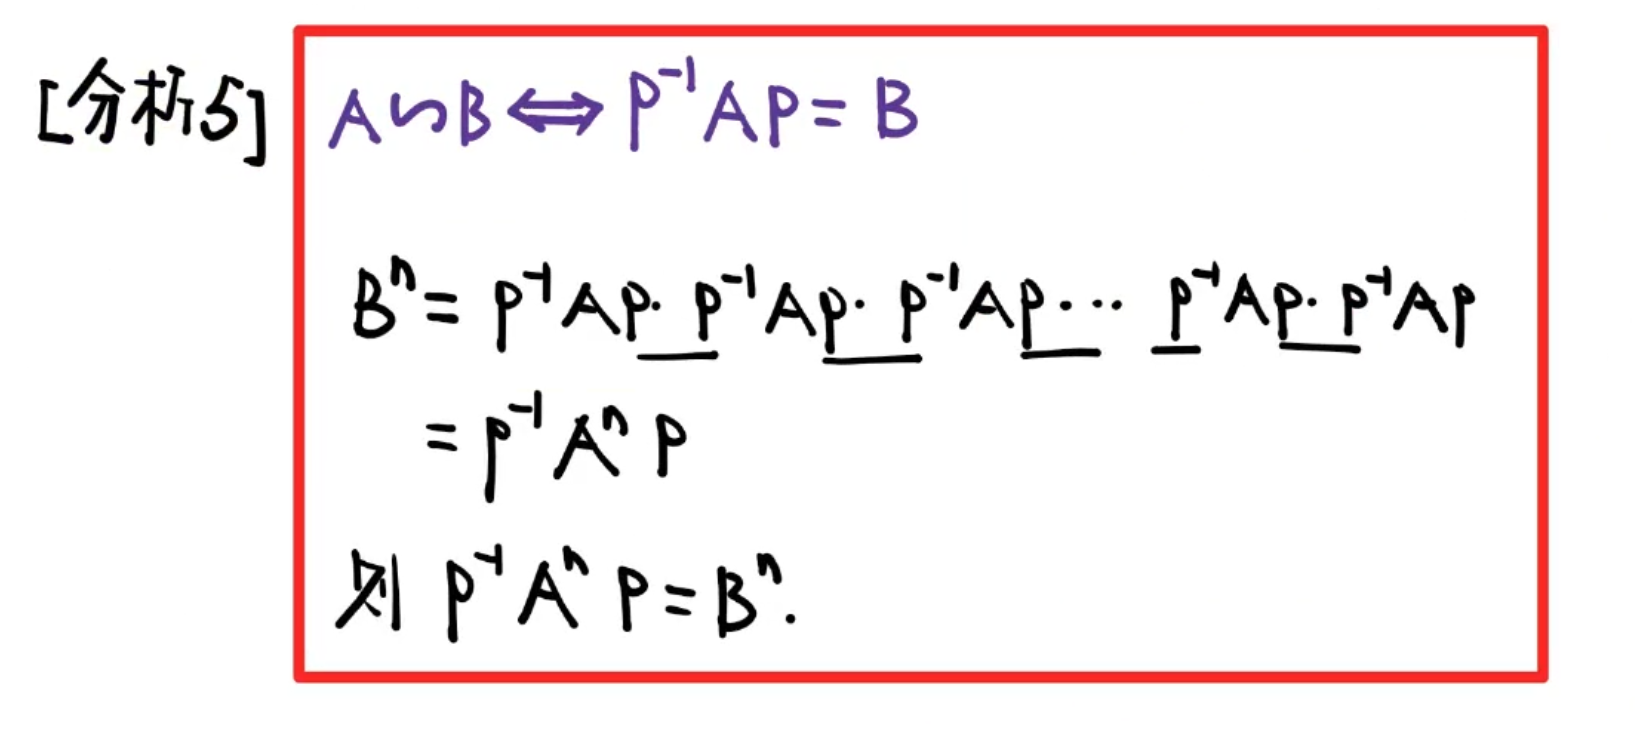 [分析5] A∽B⇔P⁻¹AP=B
Bⁿ=P⁻¹AP·P⁻¹AP·P⁻¹AP·… P⁻¹AP·P⁻¹AP
=P⁻¹AⁿP
则 P⁻¹AⁿP=Bⁿ.